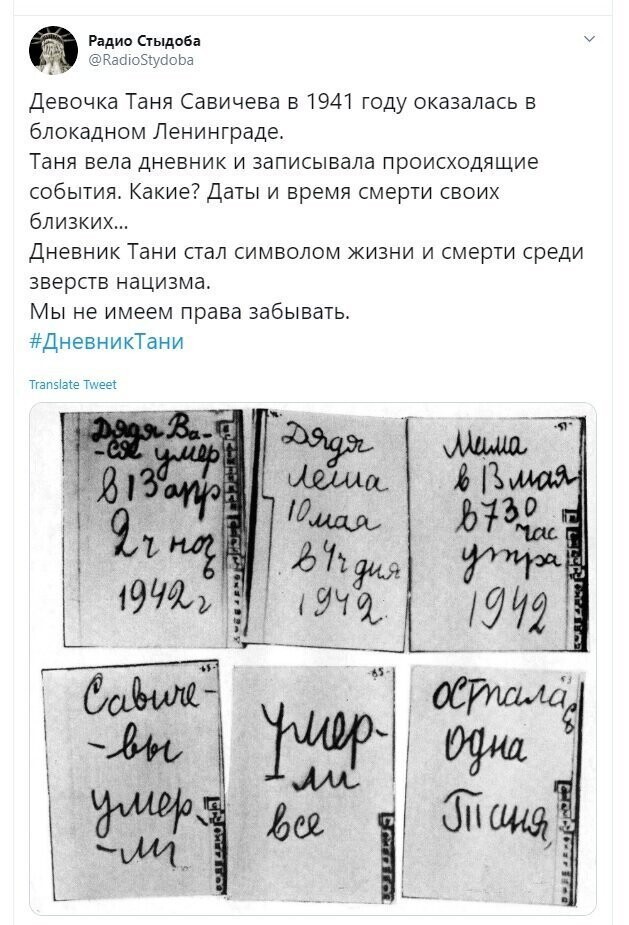 Радио Стыдоба
@RadioStydoba
Девочка Таня Савичева в 1941 году оказалась в
блокадном Ленинграде.
Таня вела дневник и записывала происходящие
события. Какие? Даты и время смерти своих
близких...
Дневник Тани стал символом жизни и смерти среди
зверств нацизма.
Мы не имеем права забывать.
#ДневникТани
Translate Tweet
Дядя Ва-
-ся умер
в 13 апр
2 ч ноч
1942 г
Дядя
Леша
10 мая
в 4 ч дня
1942
Мама
в 13 мая
в 7 30
час
утра
1942
Савиче-
-вы
умер
-ли
умер-
-ли
все
осталась
одна
Таня